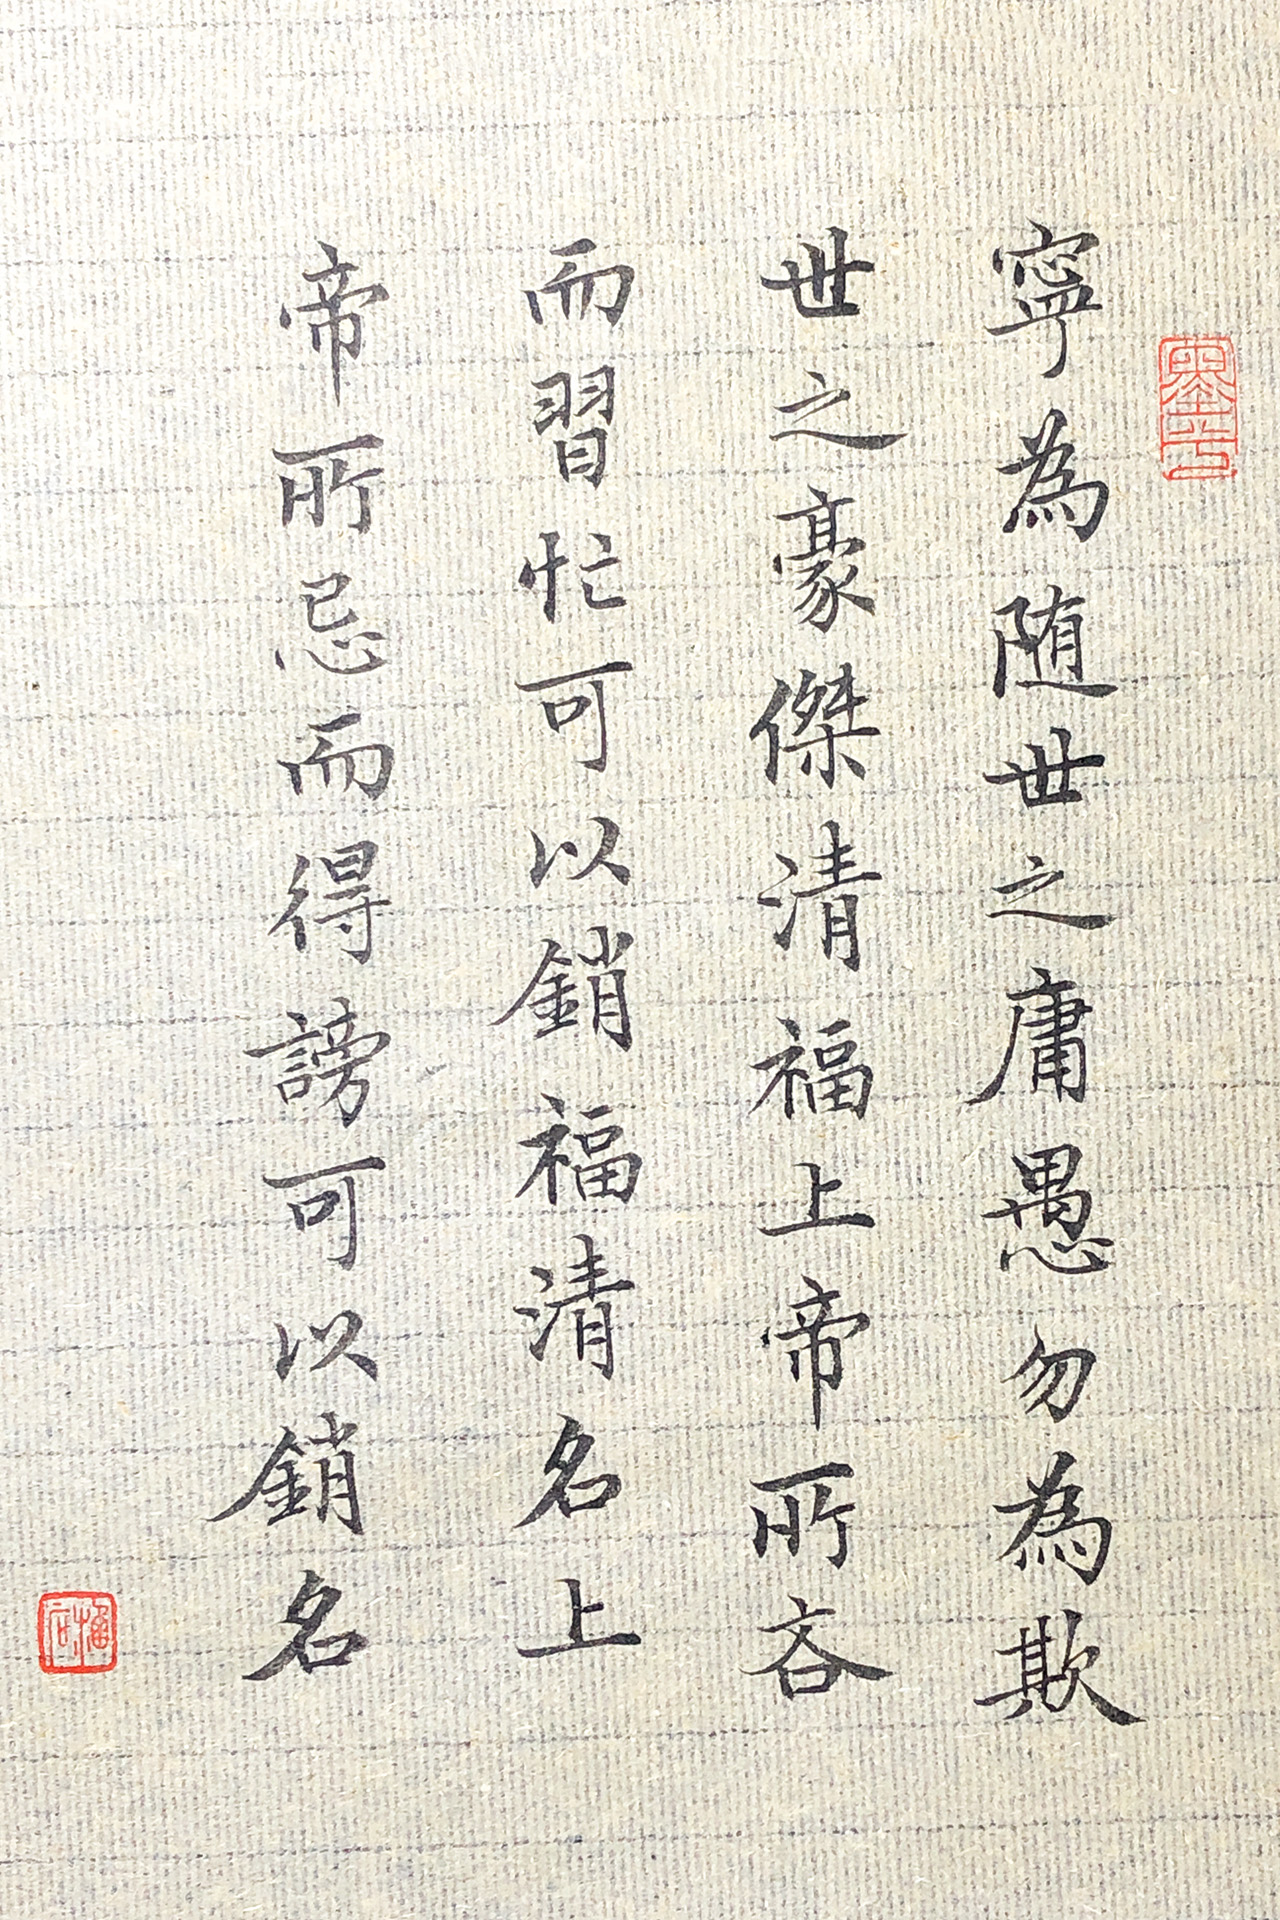 寧為随世之庸愚勿為欺
世之豪傑清福上帝所吝
而習忙可以銷福清名上
帝所忌而得謗可以銷名